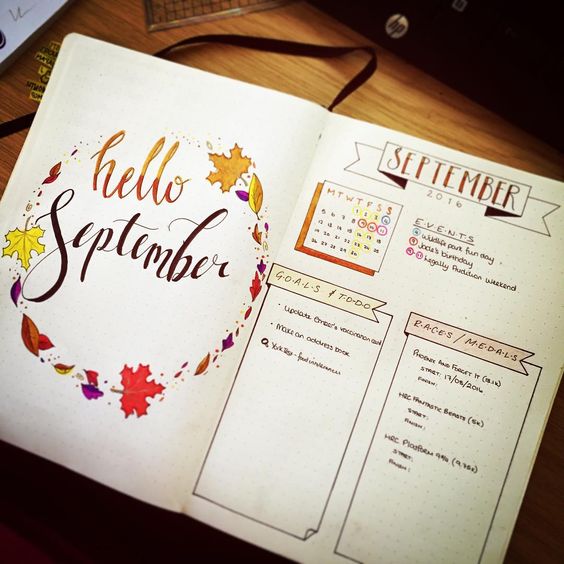 hello
September
SEPTEMBER
2016
M T W T F S S
1 2 3 4
5 6 7 8 9 10 11
12 13 14 15 16 17 18
19 20 21 22 23 24 25
26 27 28 29 30
EVENTS
Wildlife park fun day
Jade's birthday
Legally Audidian weekend
GOALS & TO-DO
Update Ember's vaccination card
Make an address book
RACES/MEDALS
PHOENIX AND FORGET IT (13.1K)
START: 17/08/2016
FINISH:
HRC FANTASTIC BEASTS (5K)
START:
FINISH:
HRC PLATFORM 9¾ (9.75K)
START:
FINISH:
hp